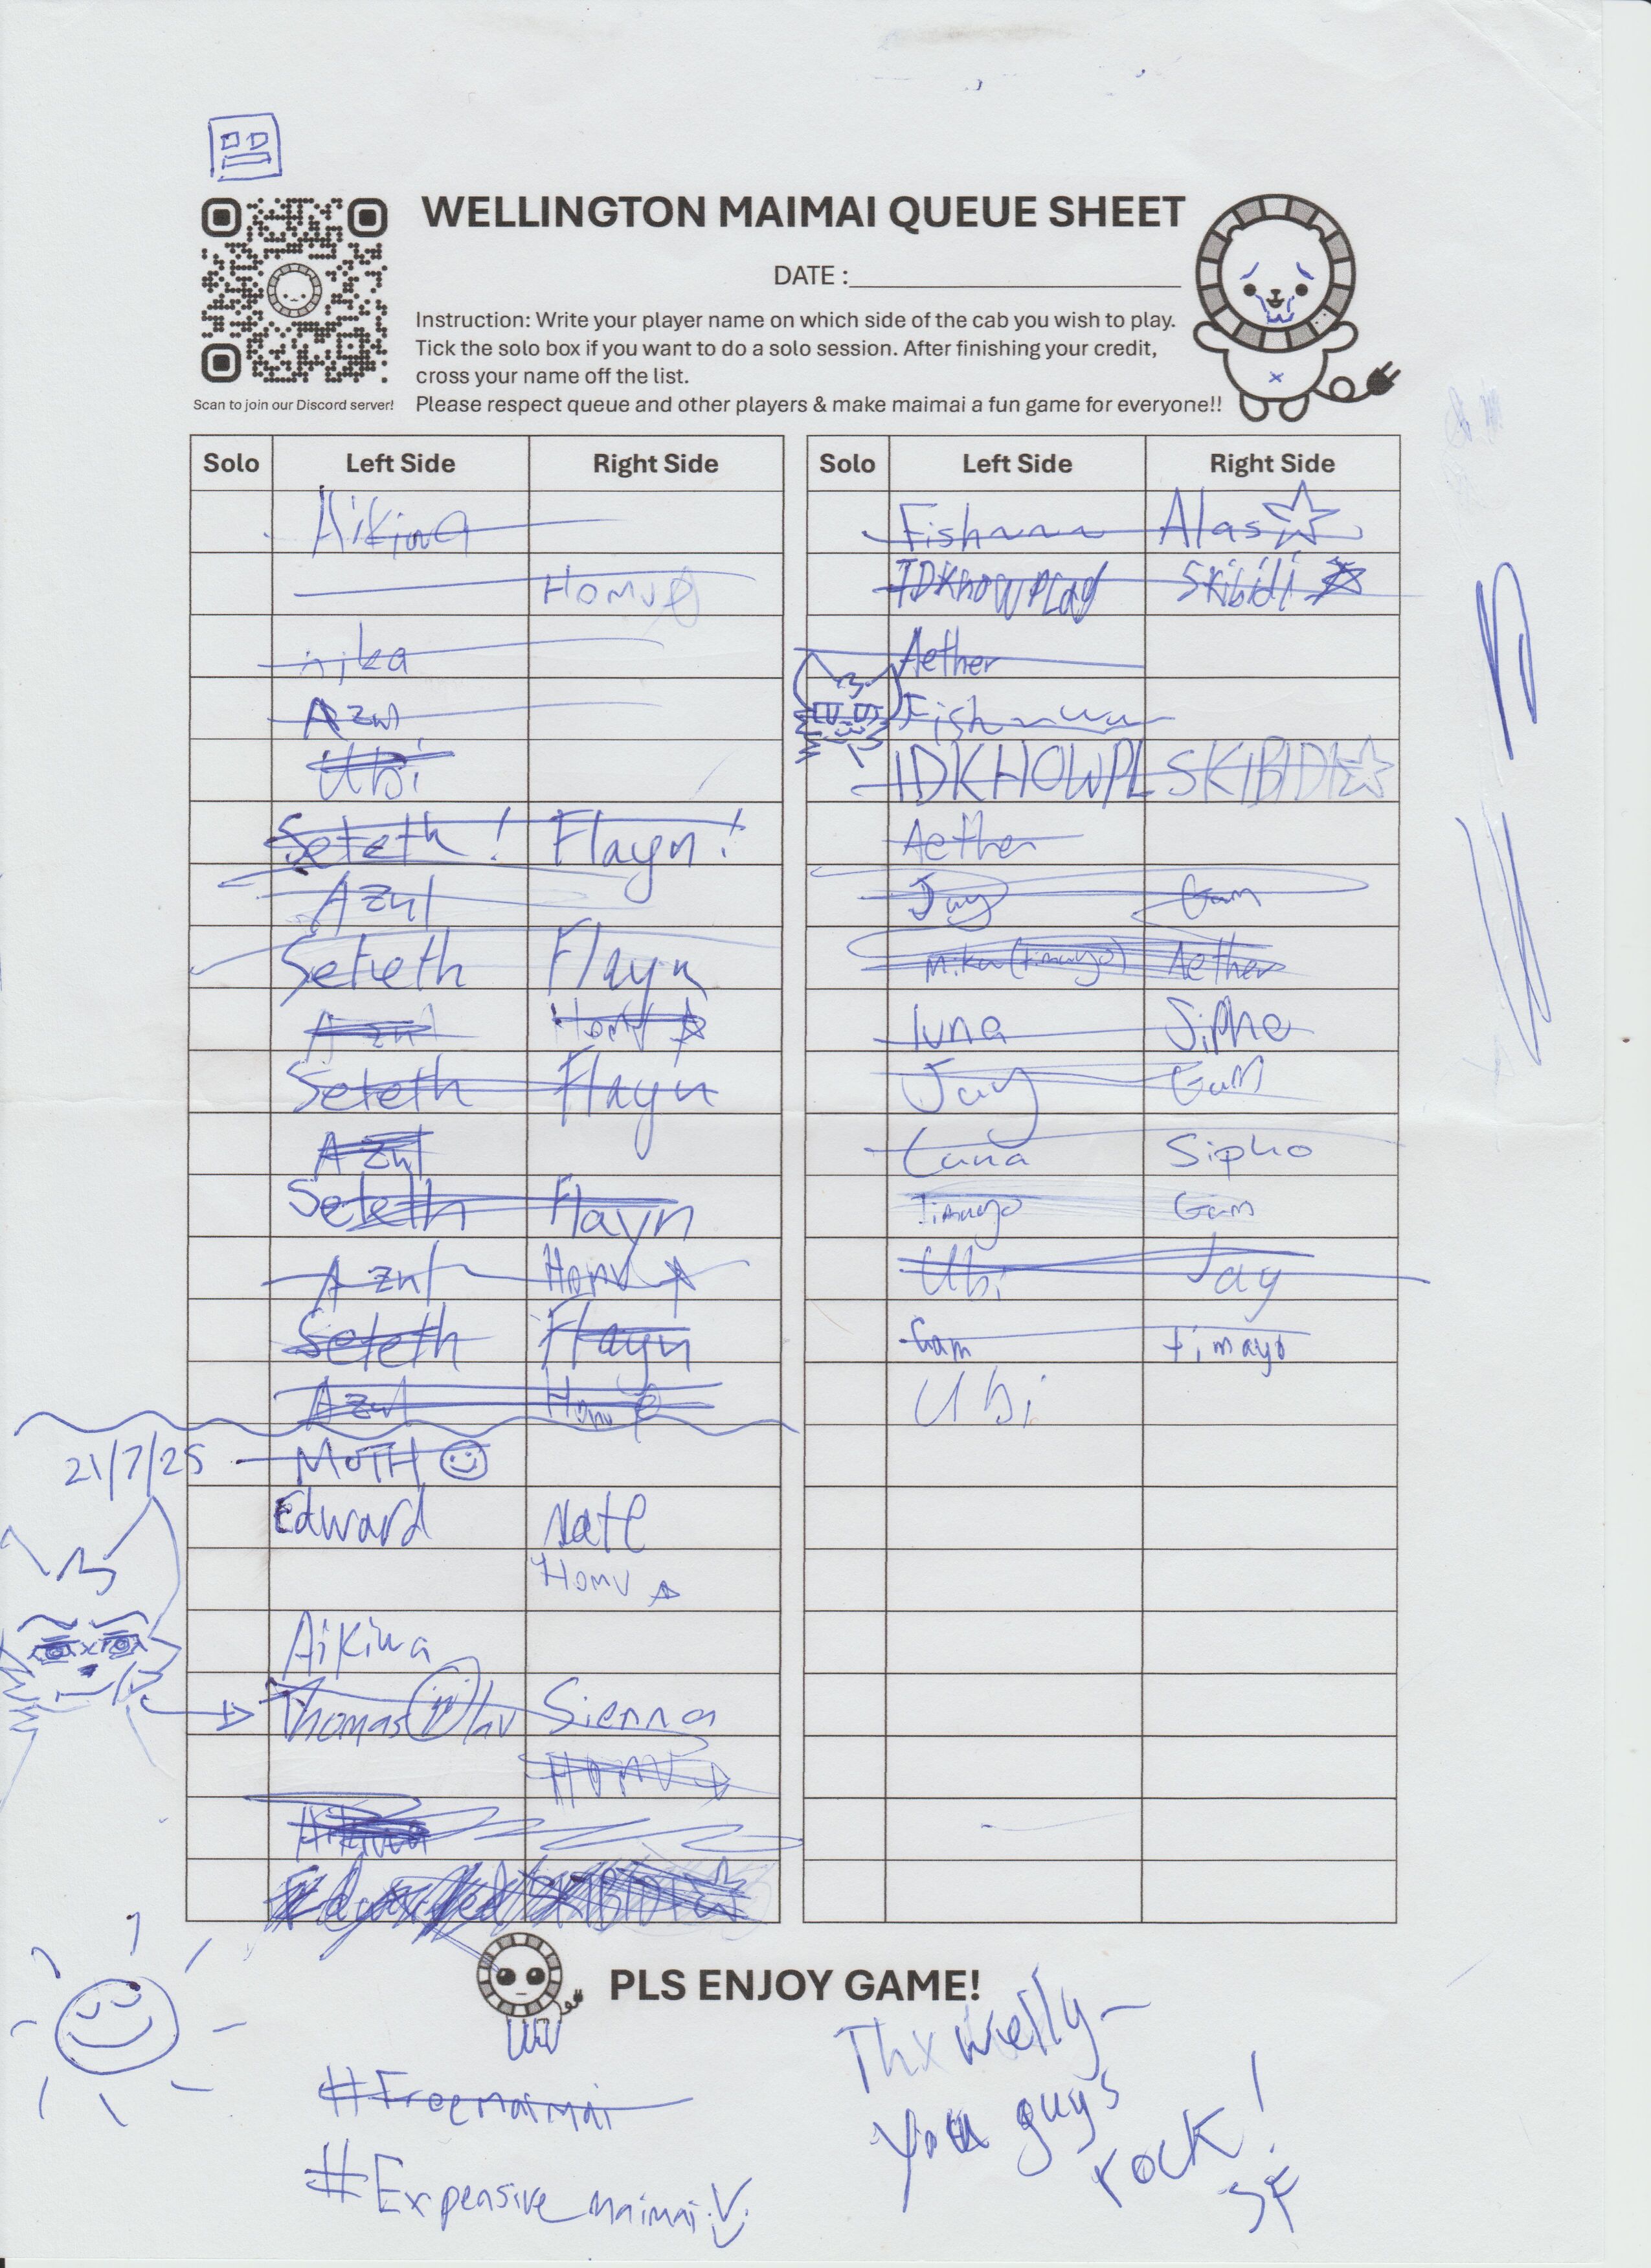 WELLINGTON MAIMAI QUEUE SHEET
DATE :
Instruction: Write your player name on which side of the cab you wish to play.
Tick the solo box if you want to do a solo session. After finishing your credit,
cross your name off the list.
Scan to join our Discord server!
Please respect queue and other players & make maimai a fun game for everyone!!
Solo Left Side Right Side
Aikiwa
Homv
nika
Azul
Ubi
Seteth! Flayn!
Azul
Seteth Flayn
Azul Homv ☆
Seteth Flayn
Azul
Seteth Flayn
Azul Homv ☆
Seteth Flayn
Azul Homv
21/7/25 MOTH ☺
Edward Nate
Homv ☆
Aikiwa
Thomas Sienna
Homv ☆
Aikiwa
Solo Left Side Right Side
Fish Alas☆
IDKHOWPLAY Skibidi ☆
Aether
Fish
IDKHOWPL SKIBIDI☆
Aether
Jay Gam
Miku (timayo) Aether
luna Sipho
Jay Gam
Luna Sipho
Timayo Gam
Ubi Jay
Gam timayo
Ubi
PLS ENJOY GAME!
#Freemaimai
#Expensive maimai
Thx welly~
you guys
rock!
SF